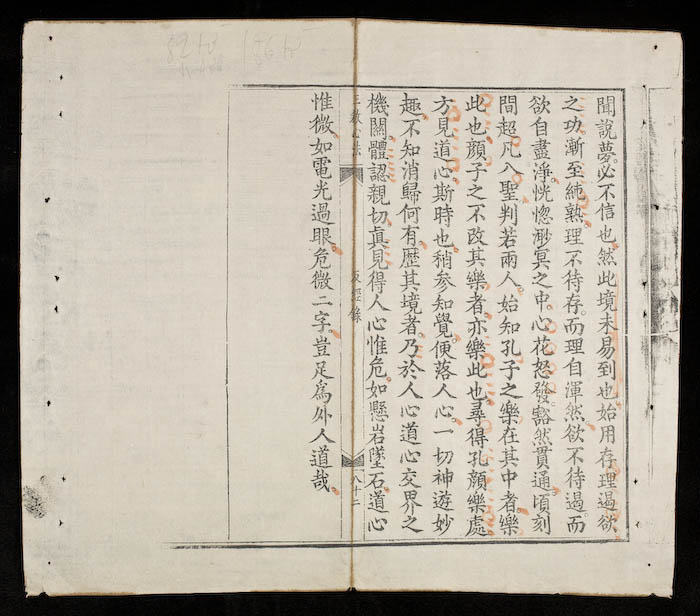 聞說夢。必不信也。然此境未易到也。始用存理遏欲
之功。漸至純熟。理不待存。而理自渾然。欲不待遏。而
欲自盡淨。恍惚渺冥之中。心花怒發。豁然貫通。頃刻
間超凡入聖。判若兩人。始知孔子之樂在其中者。樂
此也。顏子之不改其樂者。亦樂此也。尋得孔顏樂處。
方見道心。斯時也。稍參知覺。便落人心。一切神遊妙
趣。不知消歸何有。歷其境者。乃於人心道心交界之
機關。體認親切。眞見得人心惟危。如懸岩墜石。道心
三教心法
反經錄
八十二
惟微。如電光過眼。危微二字。豈足爲外人道哉。